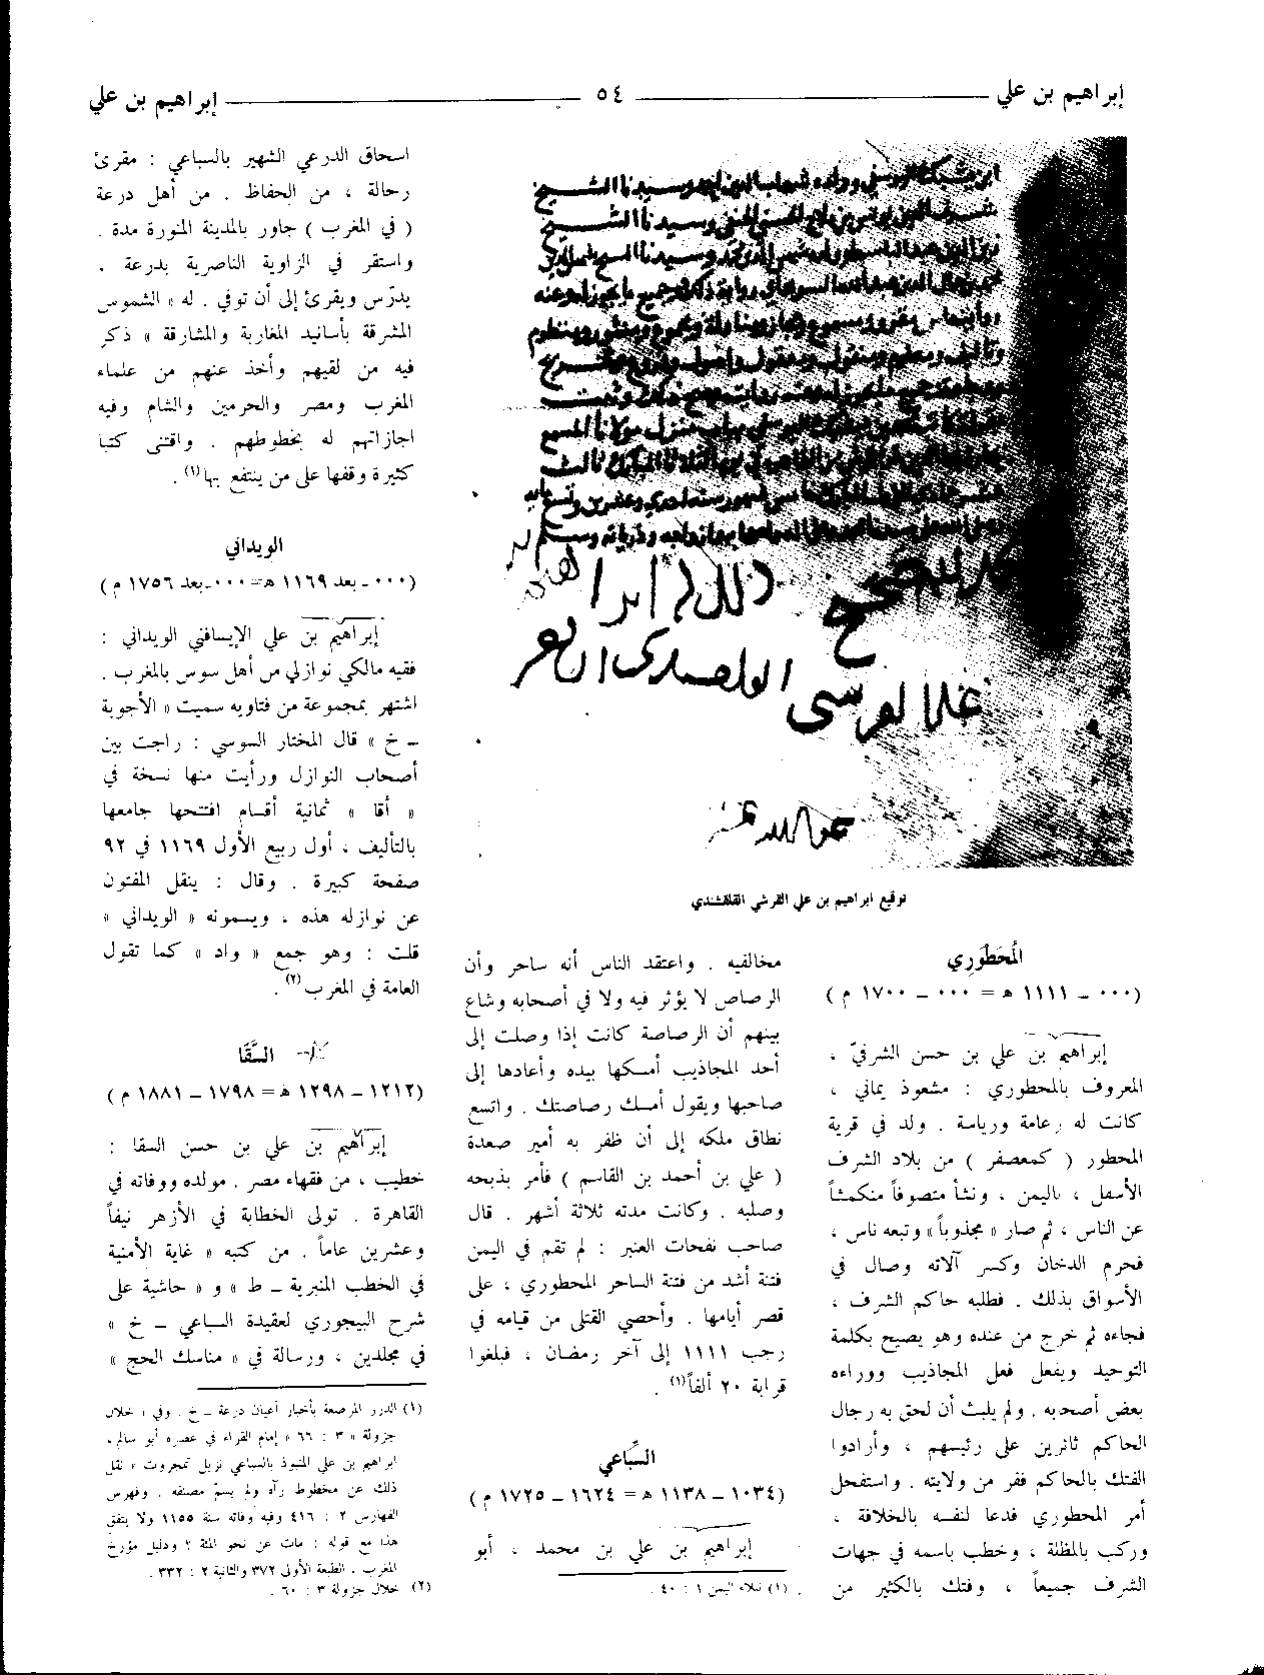 إبراهيم بن علي
٥٤
إبراهيم بن علي
توقيع ابراهيم بن علي القرشي القلقشندي
المُحَطْوَرِي
(٠٠٠ ــ ١١١١ هـ = ٠٠٠ ــ ١٧٠٠ م)
إبراهيم بن علي بن حسن الشرفيّ ،
المعروف بالمحطوري : مشعوذ يماني ،
كانت له زعامة ورياسة . ولد في قرية
المحطور ( كمعصفر ) من بلاد الشرف
الأسفل ، باليمن ، ونشأ متصوفاً منكمشاً
عن الناس ، ثم صار « مجذوباً » وتبعه ناس ،
فحرم الدخان وكسر آلاته وصال في
الأسواق بذلك . فطلبه حاكم الشرف ،
فجاءه ثم خرج من عنده وهو يصيح بكلمة
التوحيد ويفعل فعل المجاذيب ووراءه
بعض أصحابه . ولم يلبث أن لحق به رجال
الحاكم ثائرين على رئيسهم ، وأرادوا
الفتك بالحاكم ففر من ولايته . واستفحل
أمر المحطوري فدعا لنفسه بالخلافة ،
وركب بالمظلة ، وخطب باسمه في جهات
الشرف جميعاً ، وفتك بالكثير من
مخالفيه . واعتقد الناس أنه ساحر وأن
الرصاص لا يؤثر فيه ولا في أصحابه وشاع
بينهم أن الرصاصة كانت إذا وصلت إلى
أحد المجاذيب أمسكها بيده وأعادها إلى
صاحبها ويقول أمسك رصاصتك . واتسع
نطاق ملكه إلى أن ظفر به أمير صعدة
( علي بن أحمد بن القاسم ) فأمر بذبحه
وصلبه . وكانت مدته ثلاثة أشهر . قال
صاحب نفحات العنبر : لم تقم في اليمن
فتنة أشد من فتنة الساحر المحطوري ، على
قصر أيامها . وأحصي القتلى من قيامه في
رجب ١١١١ إلى آخر رمضان ، فبلغوا
قرابة ٢٠ ألفاً(١) .
السِّبَاعي
(١٠٣٤ ــ ١١٣٨ هـ = ١٦٢٤ ــ ١٧٢٥ م)
إبراهيم بن علي بن محمد ، أبو
(١) نبلاء اليمن ١ : ٤٠ .
اسحاق الدرعي الشهير بالسباعي : مقرئ
رحالة ، من الحفاظ . من أهل درعة
( في المغرب ) جاور بالمدينة المنورة مدة .
واستقر في الزاوية الناصرية بدرعة .
يدرّس ويقرئ إلى أن توفي . له « الشموس
المشرقة بأسانيد المغاربة والمشارقة » ذكر
فيه من لقيهم وأخذ عنهم من علماء
المغرب ومصر والحرمين والشام وفيه
اجازاتهم له بخطوطهم . واقتنى كتبا
كثيرة وقفها على من ينتفع بها(١) .
الويداني
(٠٠٠ ـ بعد ١١٦٩ هـ = ٠٠٠ ـ بعد ١٧٥٦ م)
إبراهيم بن علي الإيسافني الويداني :
فقيه مالكي نوازلي من أهل سوس بالمغرب .
اشتهر بمجموعة من فتاويه سميت « الأجوبة
ــ خ » قال المختار السوسي : راجت بين
أصحاب النوازل ورأيت منها نسخة في
« أقا » ثمانية أقسام افتتحها جامعها
بالتأليف ، أول ربيع الأول ١١٦٩ في ٩٢
صفحة كبيرة . وقال : ينقل المفتون
عن نوازله هذه ، ويسمونه « الويداني »
قلت : وهو جمع « واد » كما تقول
العامة في المغرب(٢) .
السَّقَّا
(١٢١٢ ــ ١٢٩٨ هـ = ١٧٩٨ ــ ١٨٨١ م)
إبراهيم بن علي بن حسن السقا :
خطيب ، من فقهاء مصر . مولده ووفاته في
القاهرة . تولى الخطابة في الأزهر نيفاً
وعشرين عاماً . من كتبه « غاية الأمنية
في الخطب المنبرية ــ ط » و « حاشية على
شرح البيجوري لعقيدة السباعي ــ خ »
في مجلدين ، ورسالة في « مناسك الحج »
(١) الدرر المرصعة بأخبار أعيان درعة ــ خ . وفي ، خلال
جزولة « ٣ : ٦٦ » إمام القراء في عصره أبو سالم ،
ابراهيم بن علي المنبوذ بالسباعي نزيل تمجروت « نقل
ذلك عن مخطوط رآه ولم يسمّ مصنفه . وفهرس
الفهارس ٢ : ٤١٦ وفيه وفاته سنة ١١٥٥ ولا يتفق
هذا مع قوله : مات عن نحو المئة ؟ ودليل مؤرخ
المغرب . الطبعة الأولى ٣٧٢ والثانية ٢ : ٣٣٢ .
(٢) خلال جزولة ٣ : ٦٠ .